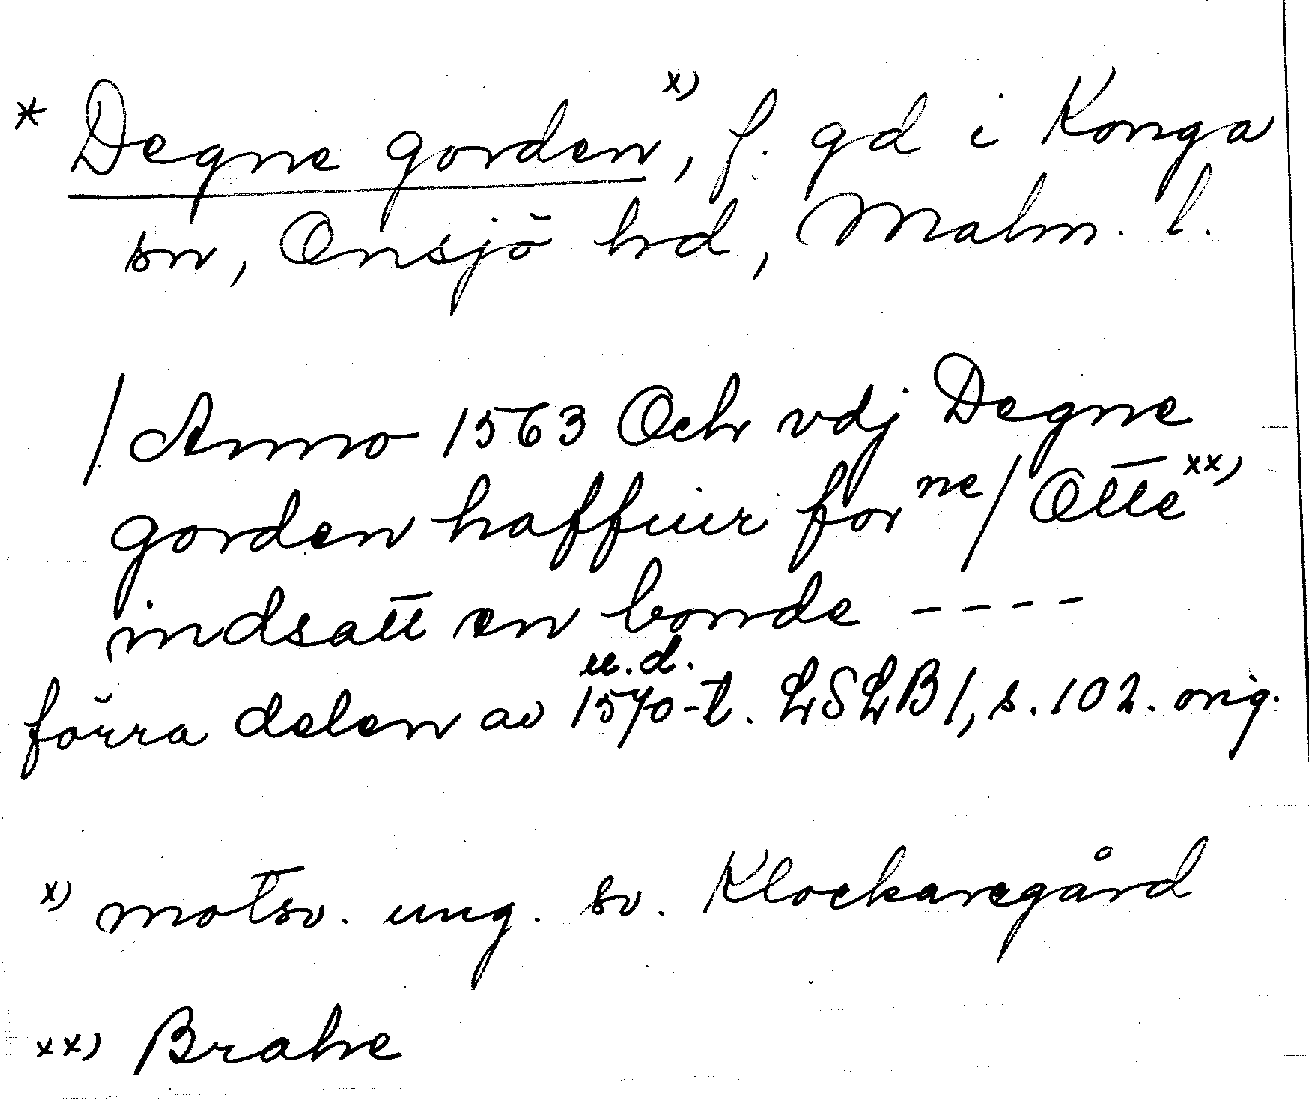 * Degne gorden x), f. gd i Konga
sn, Onsjö hd, Malm. l.
/ Anno 1563 Och vdj Degne
gorden haffuer for ne / Otte xx)
indsatt en bonde ----
u.d.
förra delen av 1570-t. LSLB 1, s. 102. orig.
x) motsv. ung. sv. Klockaregård
xx) Brahe